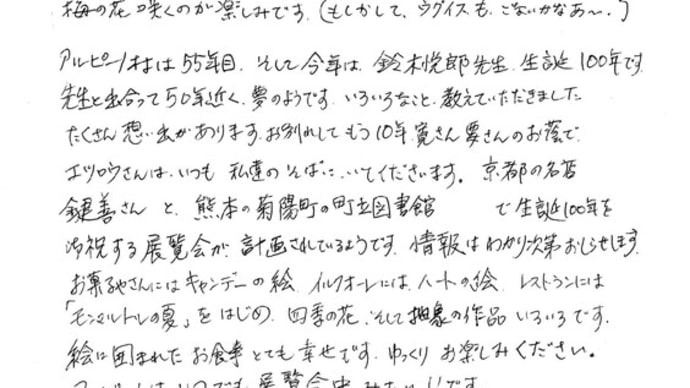 梅の花咲くのが楽しみです。(もしかして、ウグイスも、こないかなあ〜。?)
アルピーノ村は55年目。そして今年は、鈴木悦郎先生、生誕100年です。
先生と出会って50年近く、夢のようです。いろいろなこと、教えていただきました
たくさん想い出があります。お別れしてもう10年、寛さん要さんのお蔭で、
エツロウさんは、いつも私達のそばに、いてくださいます。京都の名店
鍵善さんと、熊本の菊陽町の町立図書館 で生誕100年を
お祝する展覧会が、計画されているようです。情報はわかり次第おしらせします。
お菓子やさんにはキャンデーの絵、イルフォーレには、ハートの絵、レストランには
「モンマルトルの夏」をはじめ、四季の花、そして抽象の作品いろいろです。
絵に囲まれたお食事とても幸せです。ゆっくりお楽しみください。
いつでも展覧会中